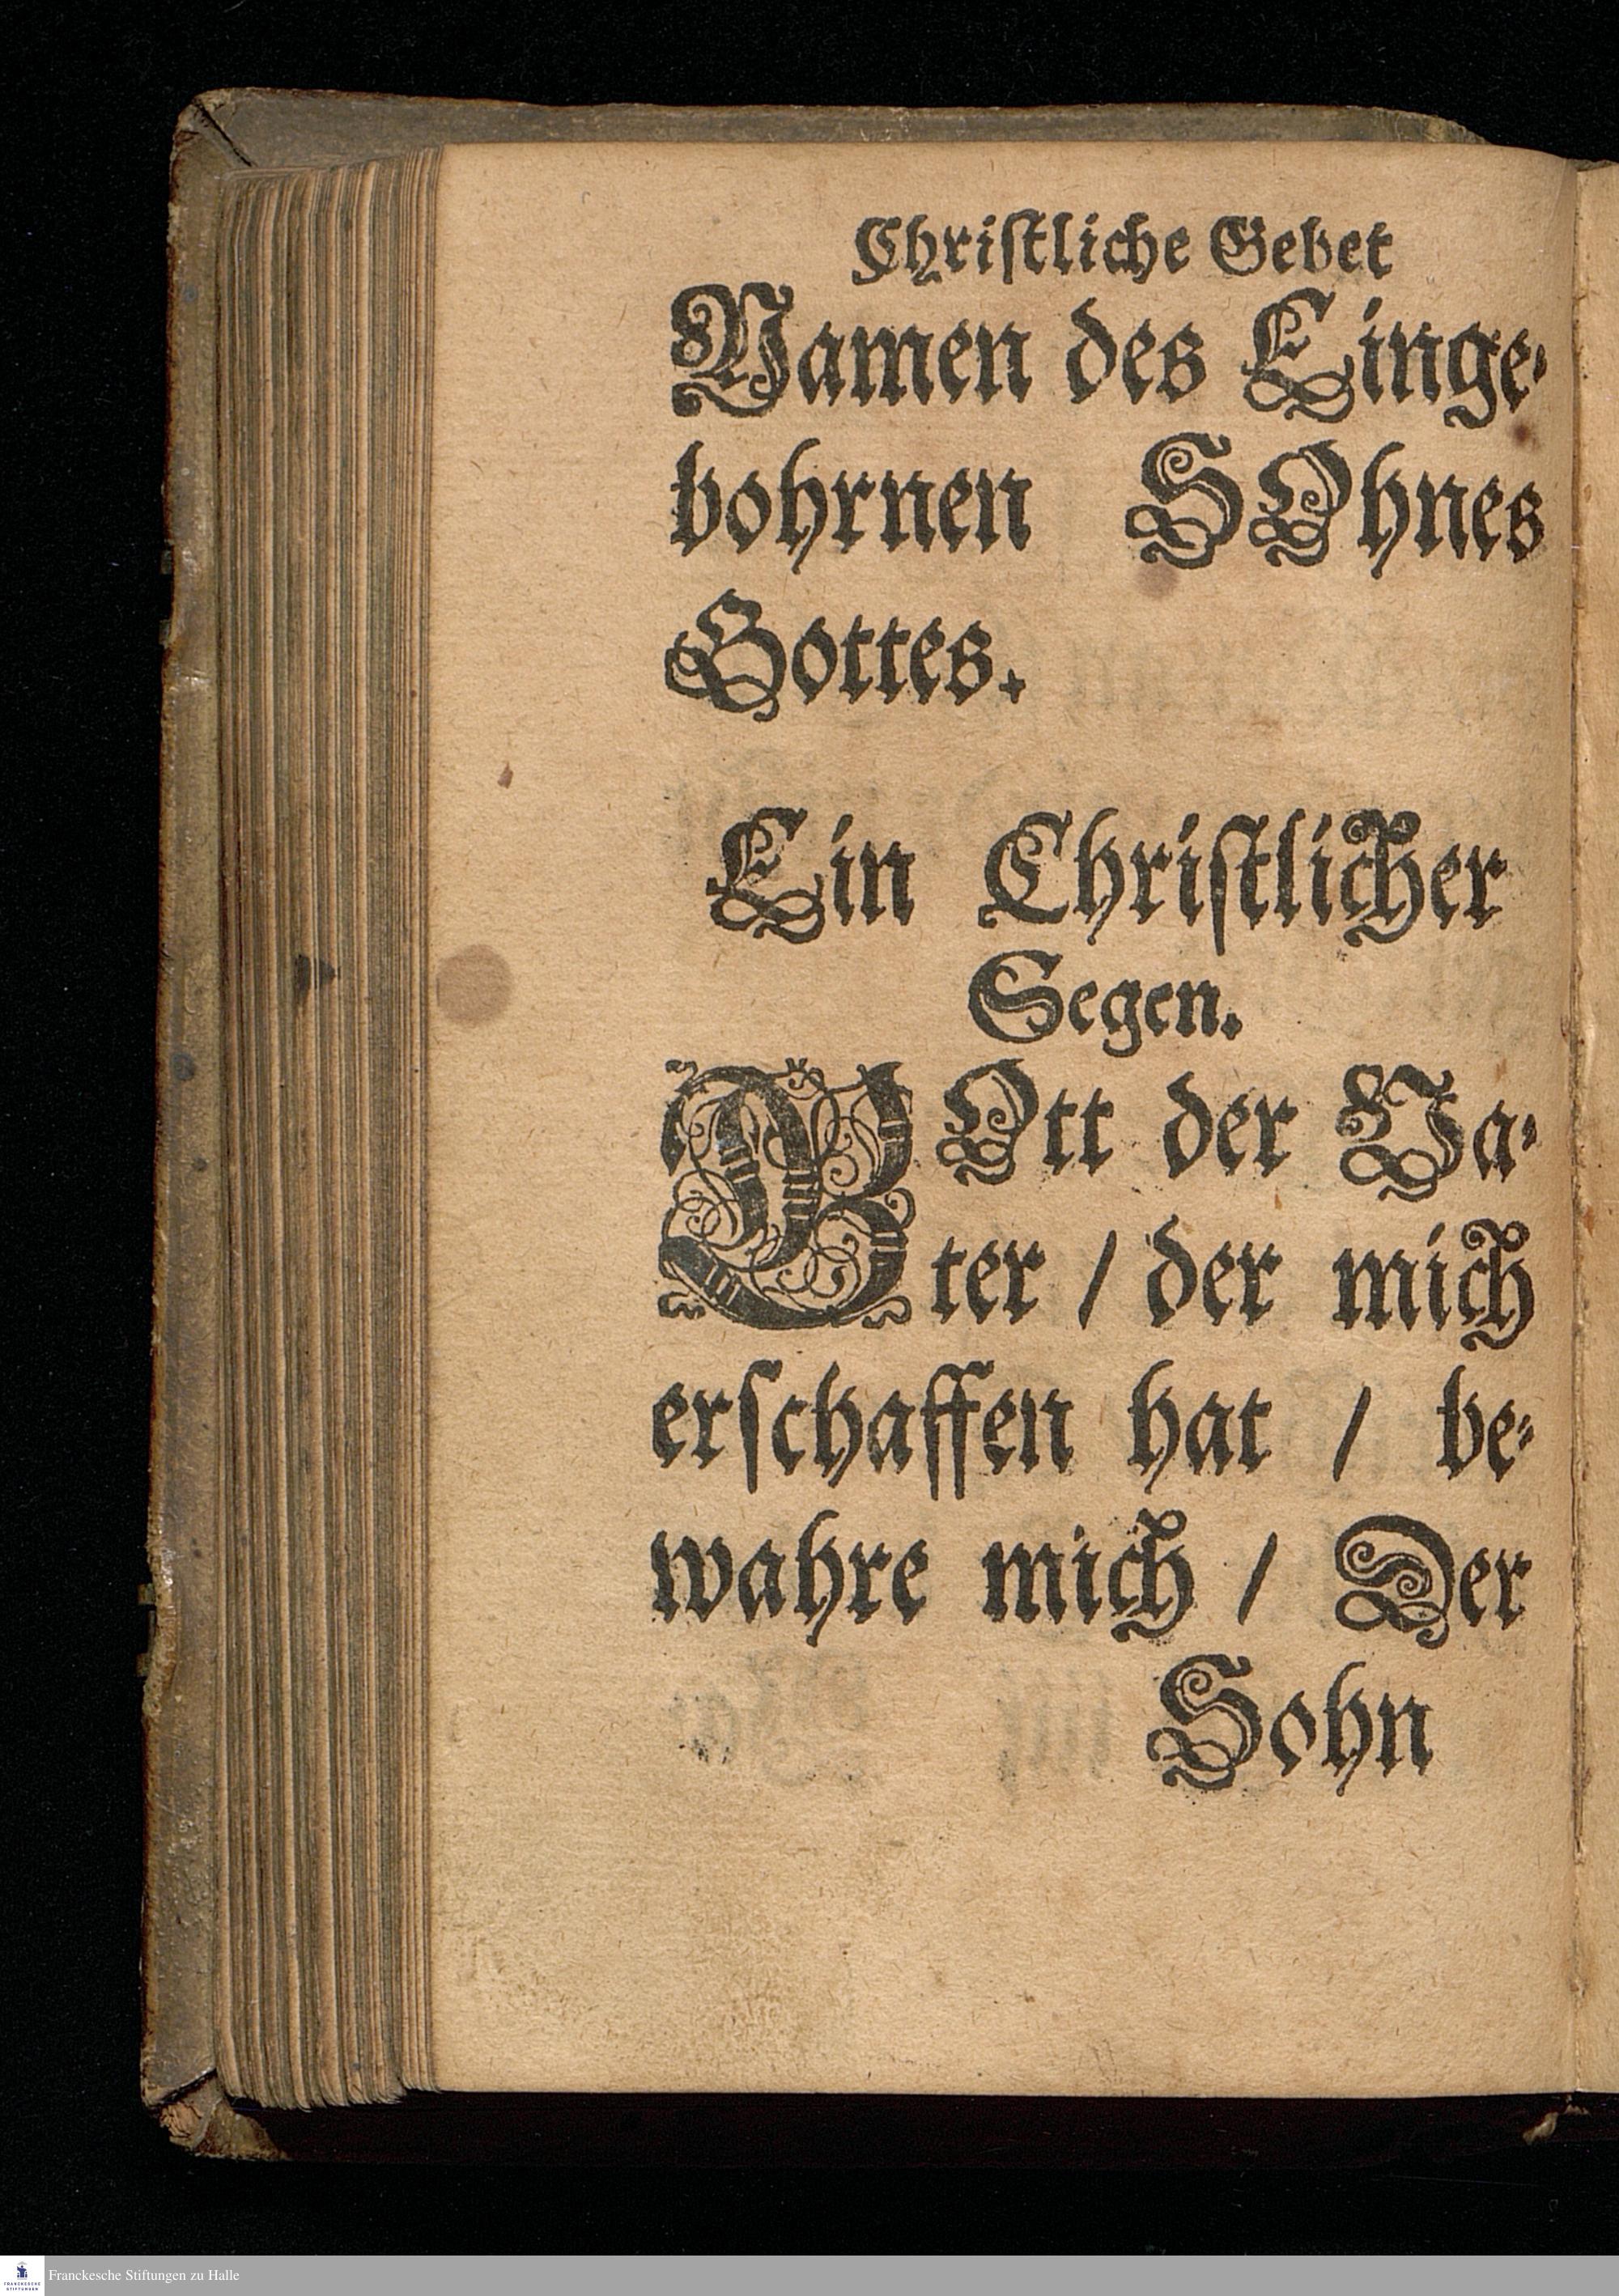 Chriſtliche Gebet
Namen des Einge⸗
bohrnen SOhnes
Gottes.
Ein Chriſtlicher
Segen.
GOtt der Va⸗
ter / der mich
erſchaffen hat / be⸗
wahre mich / Der
Sohn
FRANCKESCHE
STIFTUNGEN
Franckesche Stiftungen zu Halle